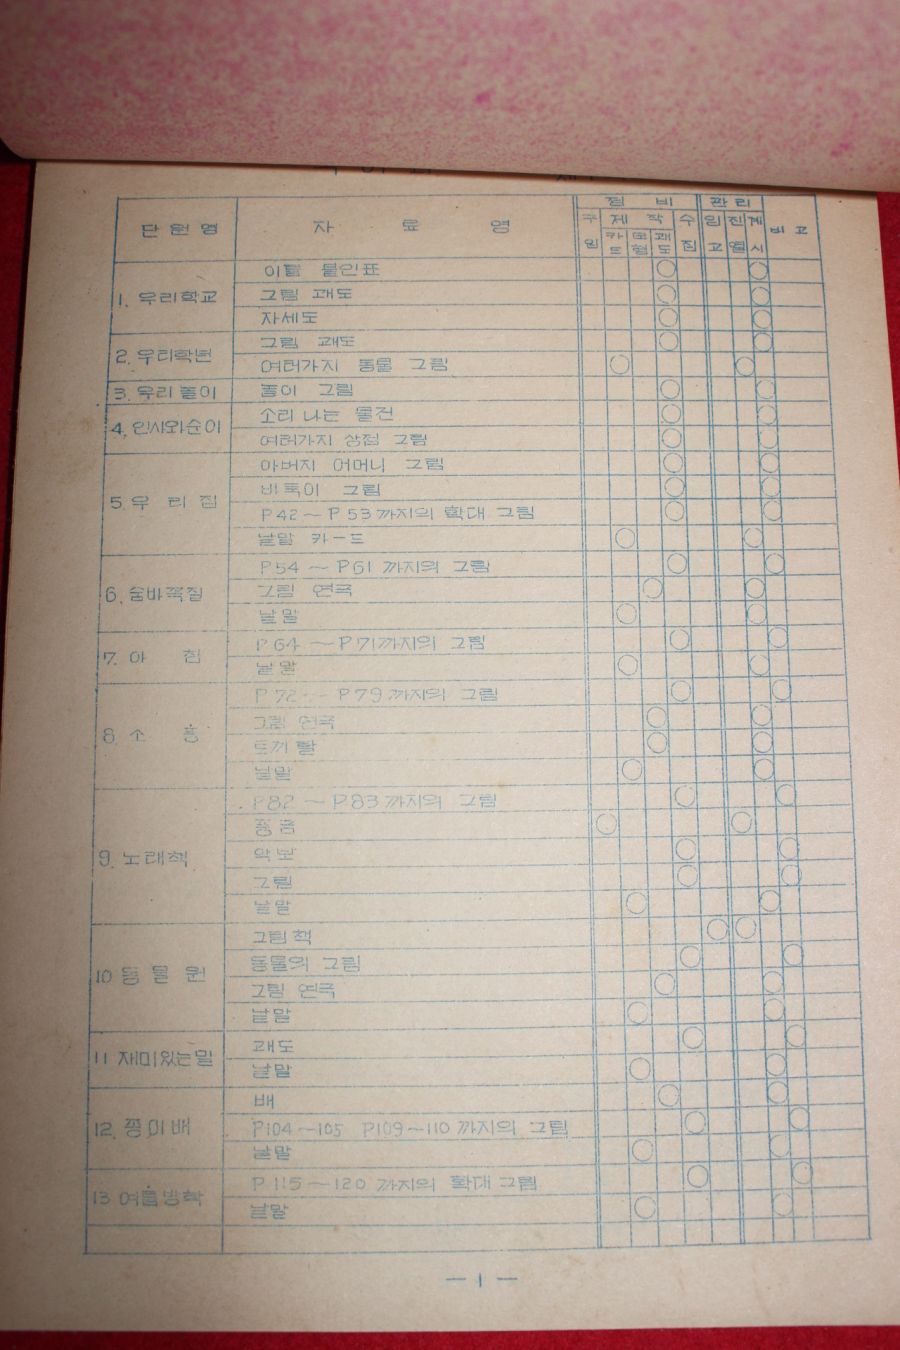 단원명 자료명 관리 비고
카트 괘도 수 계시
이름 붙인표 ○ ○
1. 우리학교 그림 괘도 ○ ○
자세도 ○ ○
그림 괘도 ○ ○
2. 우리학년 여러가지 동물 그림 ○ ○
3. 우리 놀이 놀이 그림 ○ ○
소리 나는 물건 ○ ○
4. 인사와순이 여러가지 상점 그림 ○ ○
아버지 어머니 그림 ○ ○
바둑이 그림 ○ ○
5. 우리 집 P42~P53까지의 확대 그림 ○ ○
낱말 카-드 ○ ○
P54~P61 까지의 그림 ○ ○
6. 숨바꼭질 그림 연극 ○ ○
낱말 ○ ○
P64~P71까지의 그림 ○ ○
7. 아 침 낱말 ○ ○
P72~P79까지의 그림 ○ ○
그림 연극 ○ ○
8. 소 풍 토끼 탈 ○ ○
낱말 ○ ○
P82~P83까지의 그림 ○ ○
풍금 ○ ○
악보 ○ ○
9. 노래책 그림 ○ ○
낱말 ○ ○
그림책 ○ ○
동물의 그림 ○ ○
10 동 물 원 그림 연극 ○ ○
낱말 ○ ○
괘도 ○ ○
11 재미있는말 낱말 ○ ○
배 ○ ○
12. 종이배 P104~105 P109~110까지의 그림 ○ ○
낱말 ○ ○
P115~120 까지의 확대 그림 ○ ○
13 여름방학 낱말 ○ ○
— 1 —